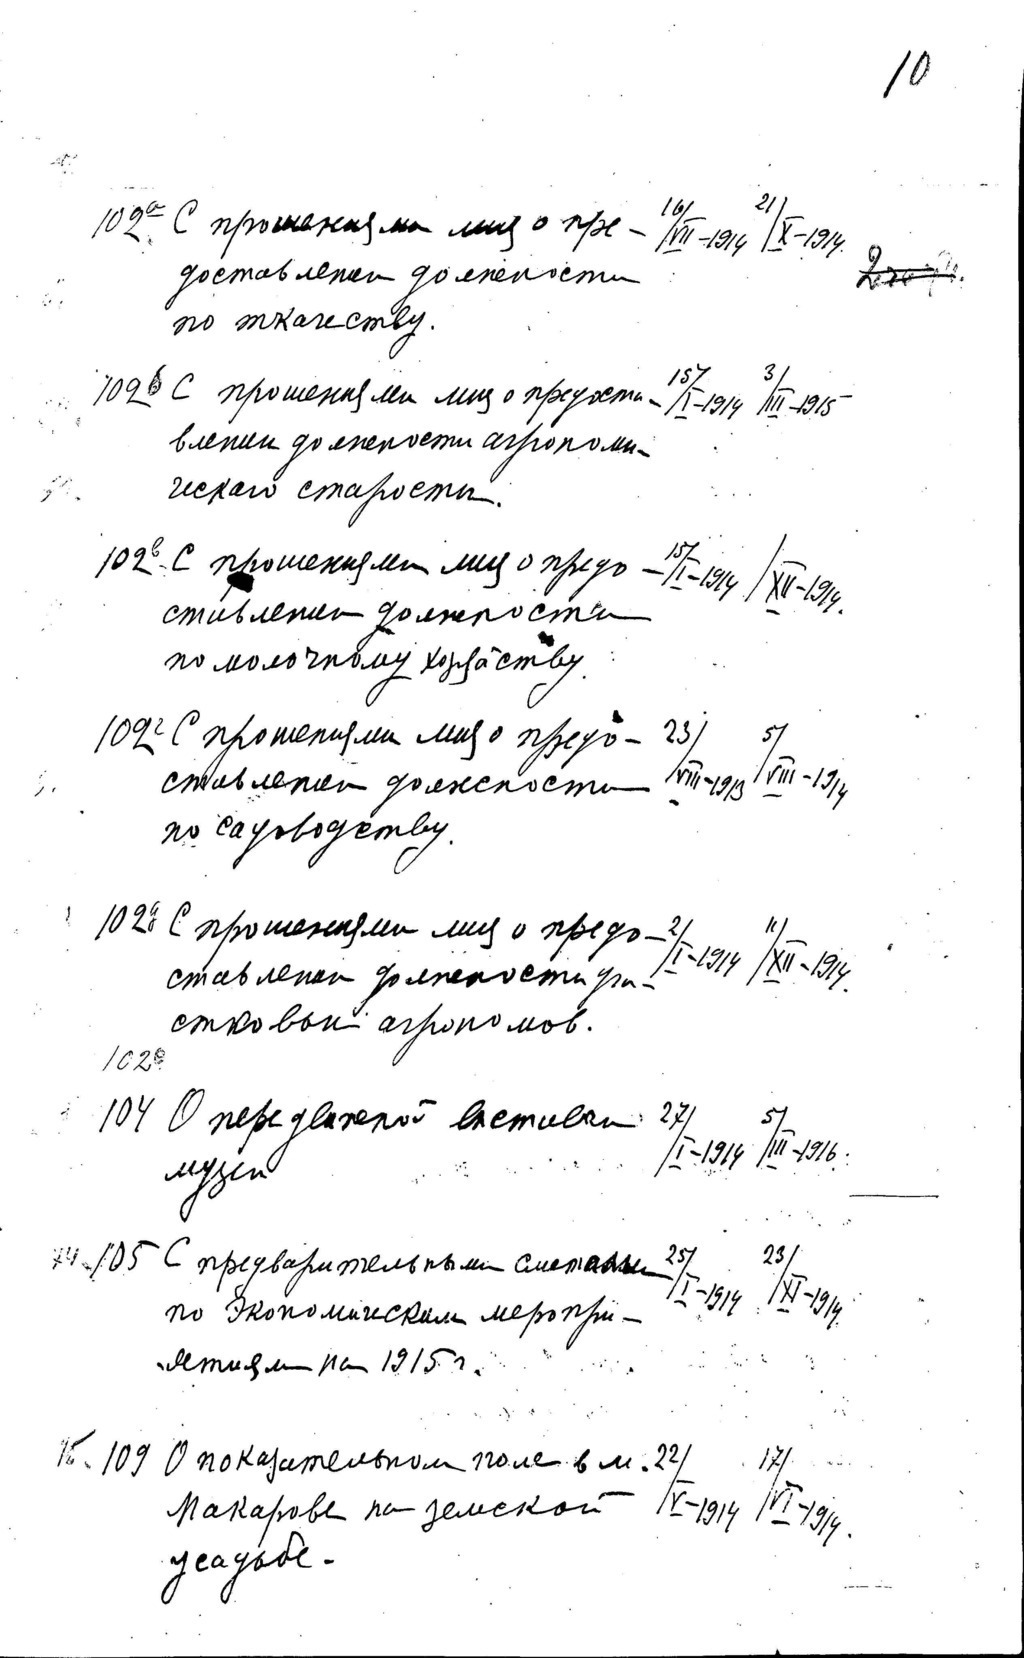 10
102а С прошениями лиц о пре- 16/VII-1914 21/X-1914.
доставлении должности
по ткачеству.
102б С прошениями лиц о предоста- 15/I-1914 3/III-1915
влении должности агрономи-
ческаго старосты.
102в С прошениями лиц о предо- 15/I-1914 /XII-1914.
ставлении должности
по молочному хозяйству.
102г С прошениями лиц о предо- 23/VIII-1913 5/VIII-1914
ставлении должности
по садоводству.
102д С прошениями лиц о предо- 2/I-1914 11/XII-1914.
ставлении должности уча-
стковый агрономов.
102е
104 О передвижной выставки 27/I-1914 5/III-1916.
музеи
74. 105 С предварительными сметами 25/I-1914 23/XI-1914.
по экономическим меропри-
ятиям на 1915 г.
75. 109 О показательном поле в м. 22/V-1914 17/VI-1914.
Макарове на земской
усадьбе.